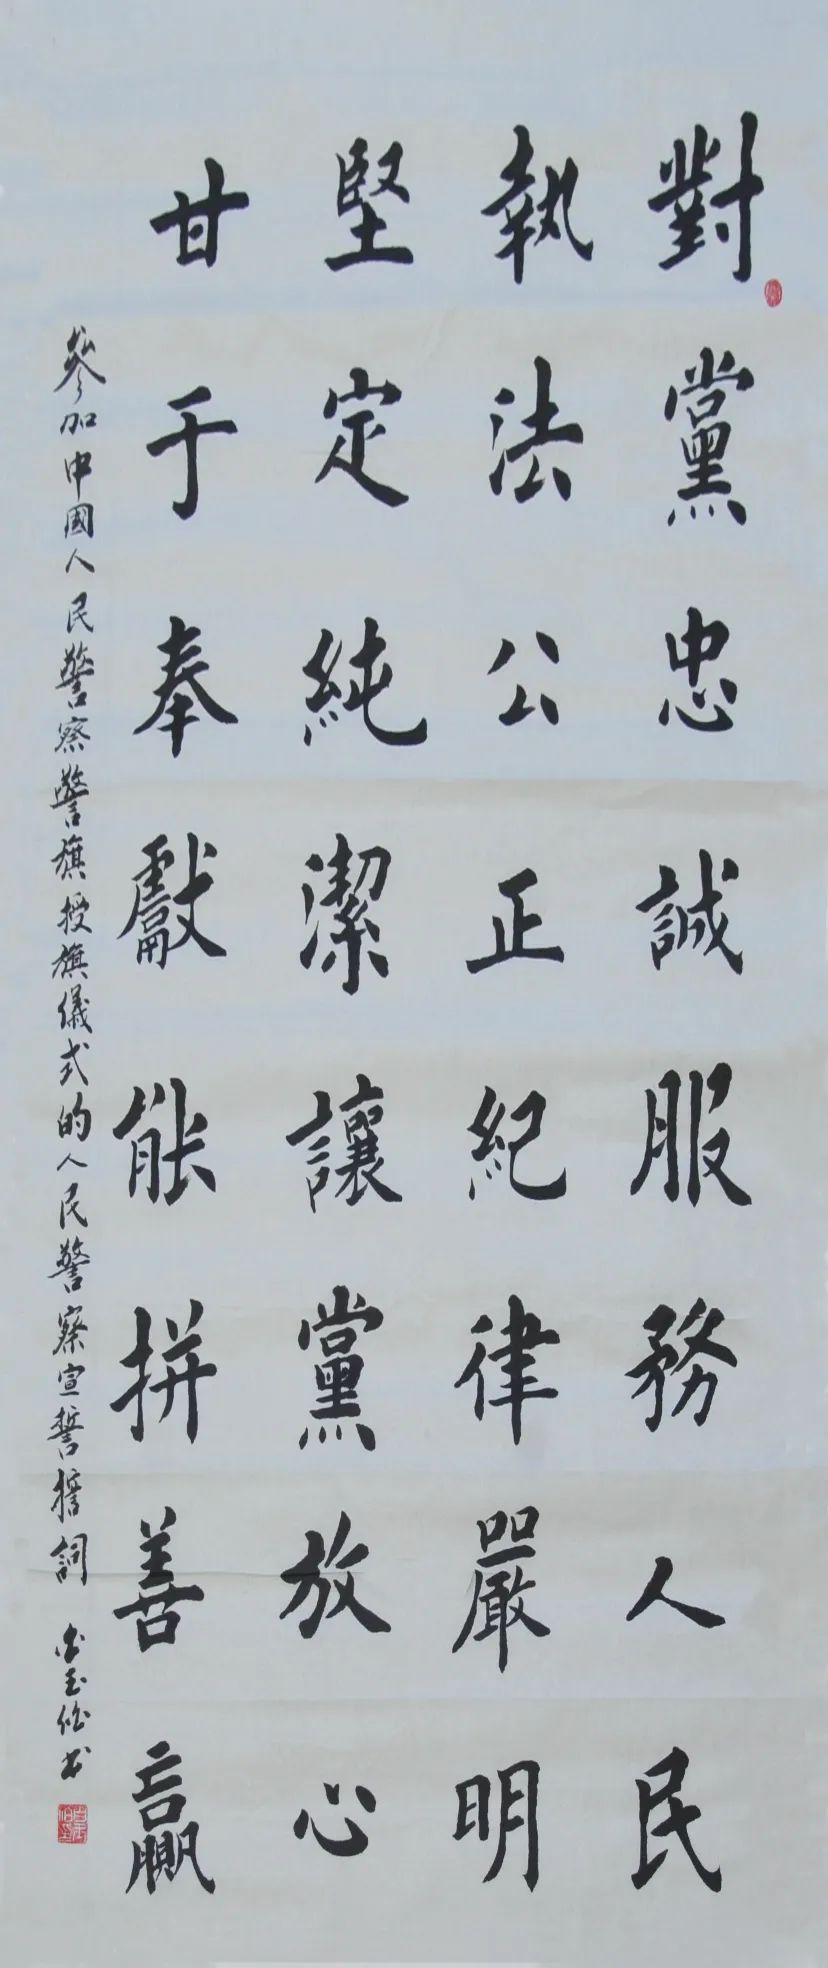 對黨忠誠服務人民
執法公正紀律嚴明
堅定純潔讓黨放心
甘于奉獻能拼善贏
參加中國人民警察警旗授旗儀式的人民警察宣誓誓詞 玉 书